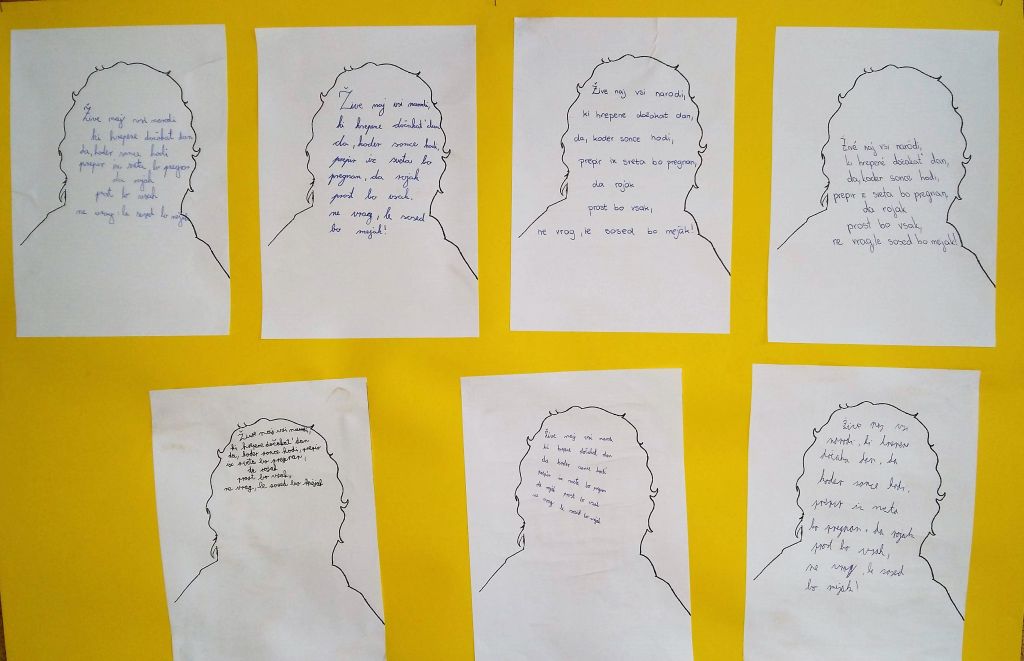 Žive naj vsi narodi
ki hrepene dočakat dan
da, koder sonce hodi
prepir iz sveta bo pregnan
da rojak
prost bo vsak
ne vrag, le sosed bo mejak
Žive naj vsi narodi,
ki hrepene dočakat' dan
da, koder sonce hodi,
prepir iz sveta bo
pregnan, da rojak
prost bo vsak.
ne vrag, le sosed
bo mejak!
Žive naj vsi narodi,
ki hrepene dočakat dan,
da, koder sonce hodi,
prepir iz sveta bo pregnan,
da rojak
prost bo vsak,
ne vrag, le sosed bo mejak!
Živé naj vsi narodi,
ki hrepené dočakat' dan,
da, koder sonce hodi,
prepir iz sveta bo pregnan,
da rojak
prost bo vsak,
ne vrag le sosed bo mejak!
Žive naj vsi narodi,
ki hrepene dočakat' dan
da, koder sonce hodi, prepir
iz sveta bo pregnan,
da rojak
prost bo vsak,
ne vrag, le sosed bo mejak
Žive naj vsi narodi
ki hrepene dočakat dan
da koder sonce hodi
prepir iz sveta bo pregnan
da rojak prost bo vsak
ne vrag le sosed bo mejak
Žive naj vsi
narodi, ki hrepene
dočaka dan, da
koder sonce hodi,
prepir iz sveta
bo pregnan, da rojak
prost bo vsak,
ne vrag, le sosed
bo mejak!